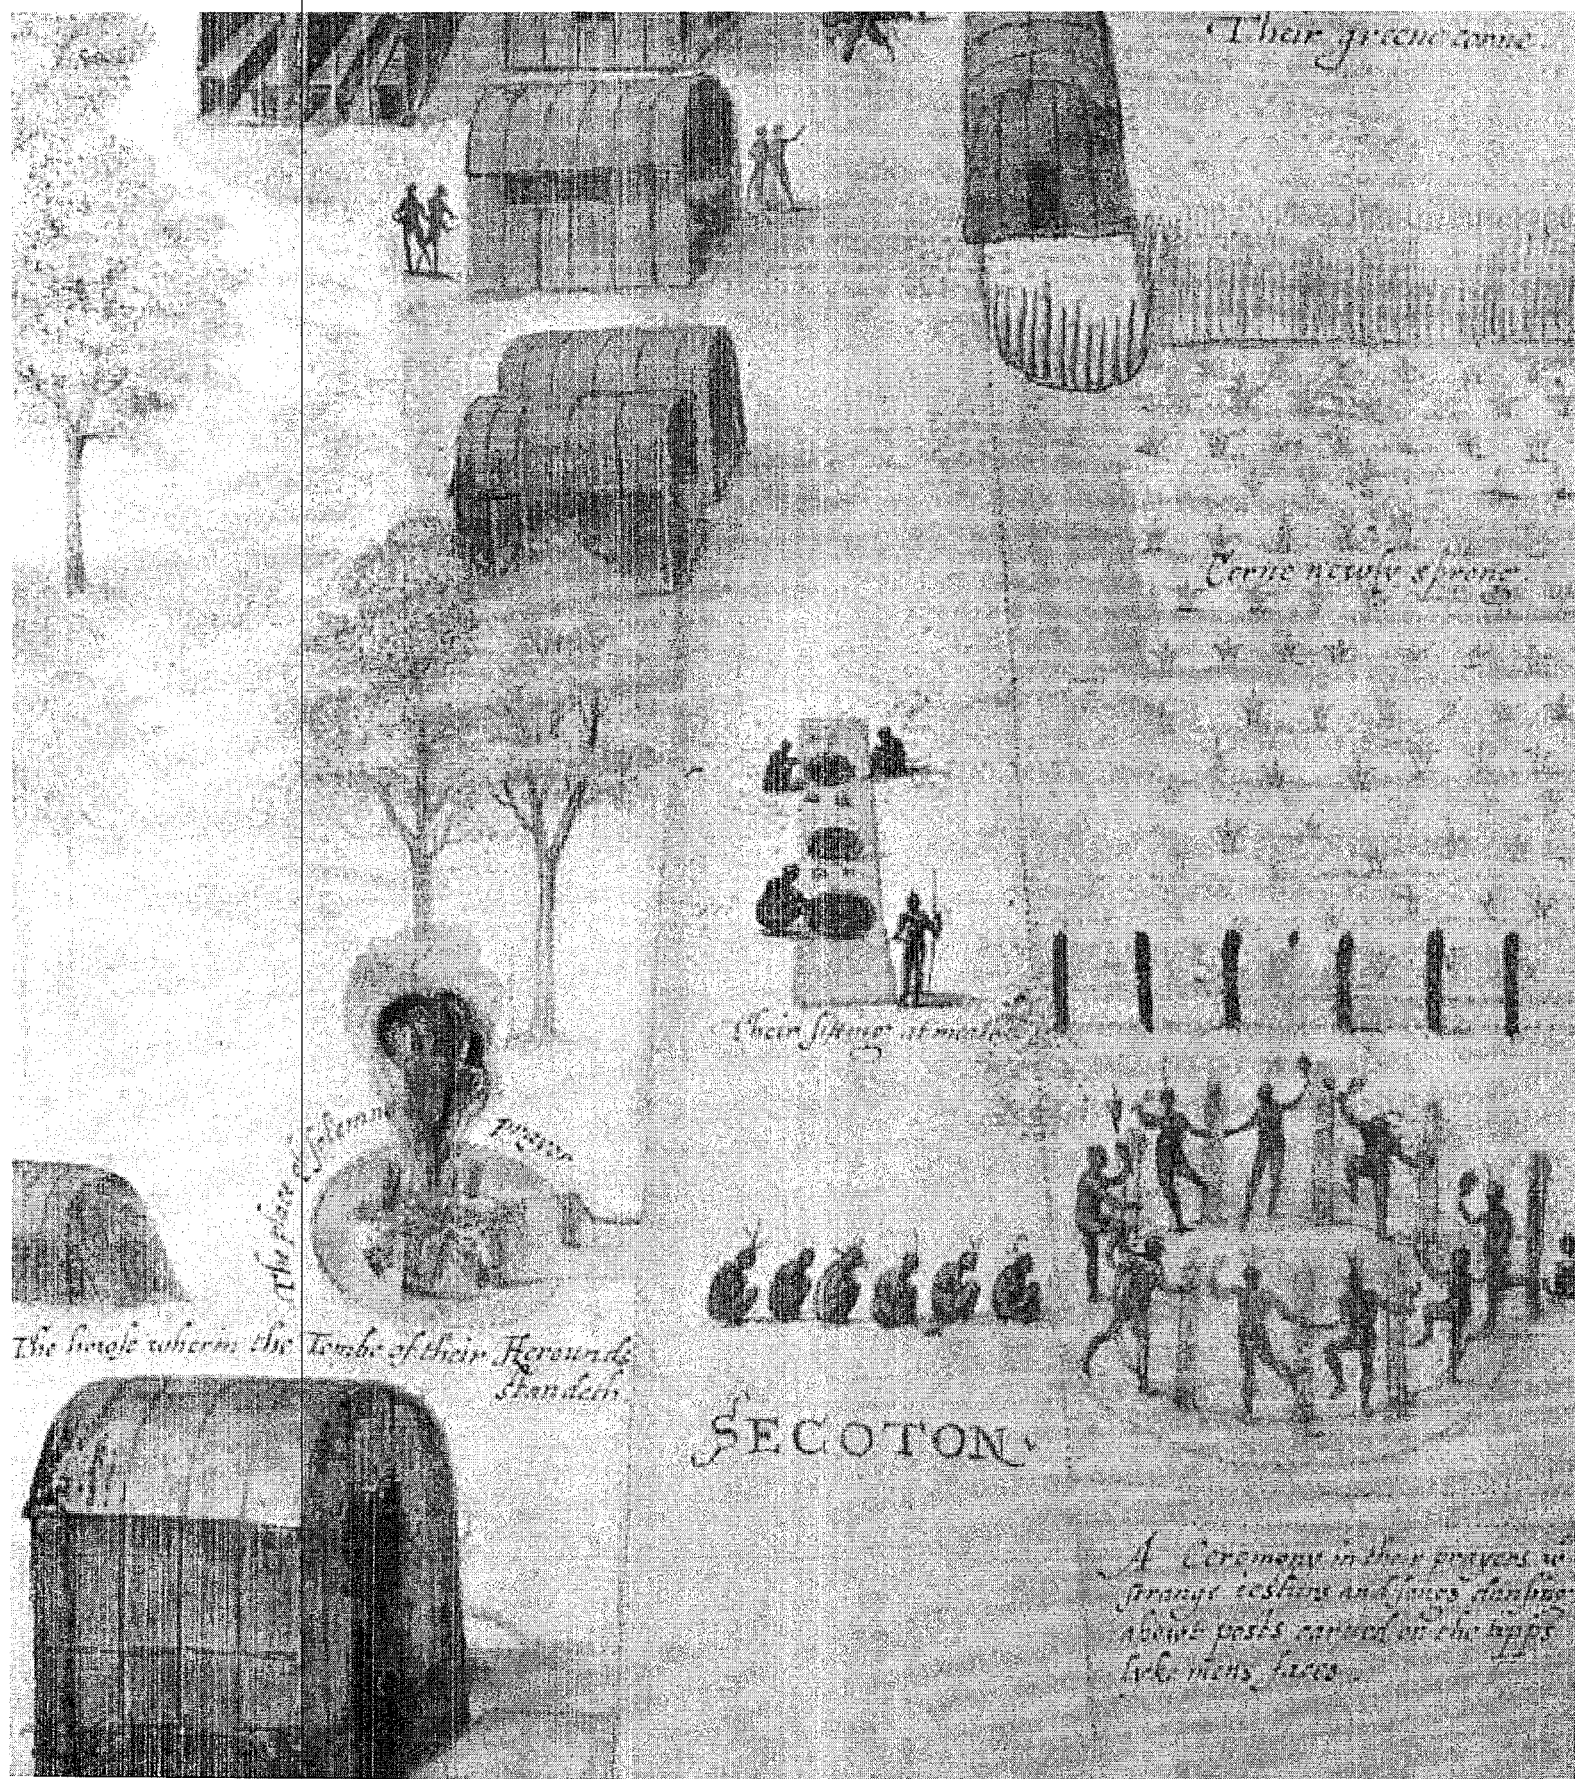 Their greene corne.
Corne newly sprong.
Their sitting at meate.
The place of solemne prayer.
The howse wherin the Tombe of their Herounds
standeth.
SECOTON.
A Ceremony in their prayers wth
strange iestures and songs dansing
abowt posts carued on the topps
lyke mens faces.